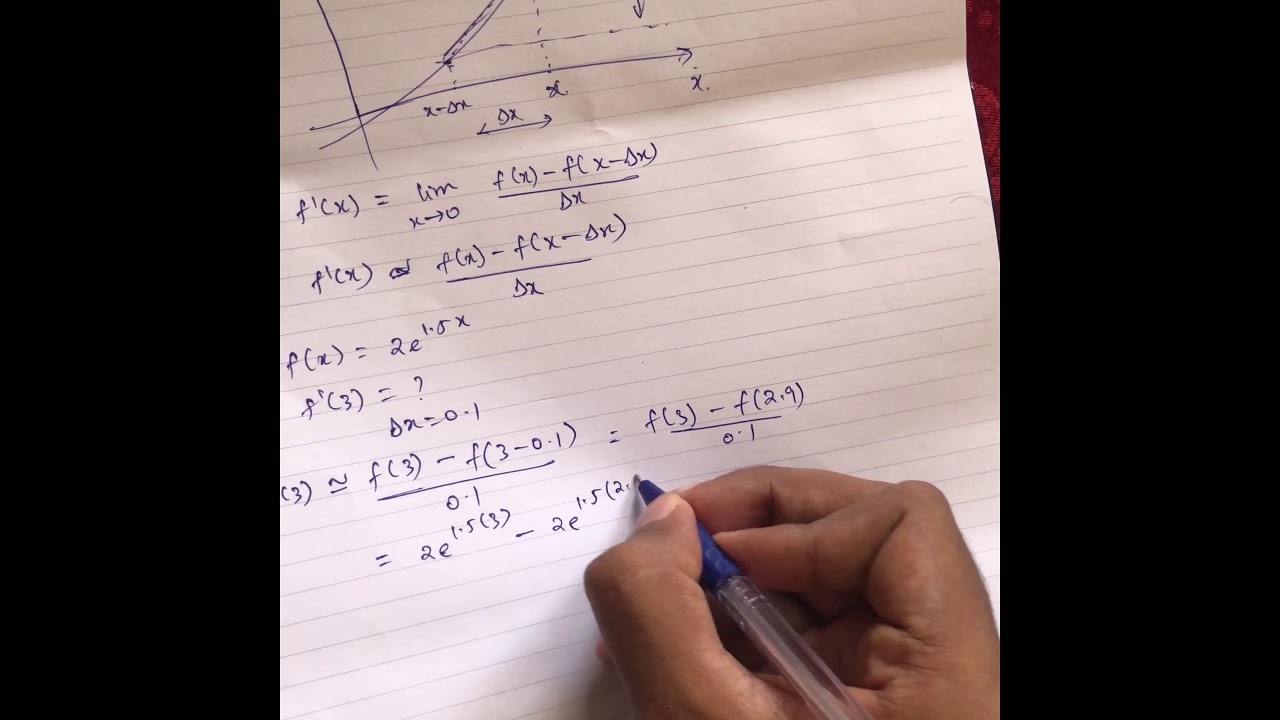 x-Δx
x.
x.
Δx
f'(x) = lim x→0 f(x) - f(x-Δx) / Δx
f'(x) ≃ f(x) - f(x-Δx) / Δx
f(x) = 2e^1.5x
f'(3) = ?
Δx=0.1
(3) ≃ f(3) - f(3-0.1) / 0.1 = f(3) - f(2.9) / 0.1
= 2e^1.5(3) - 2e^1.5(2.